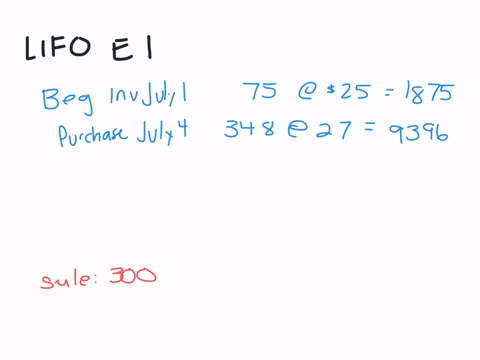 LIFO E 1
Beg Inv July 1 75 @ $25 = 1875
Purchase July 4 348 @ 27 = 9396
sale: 300